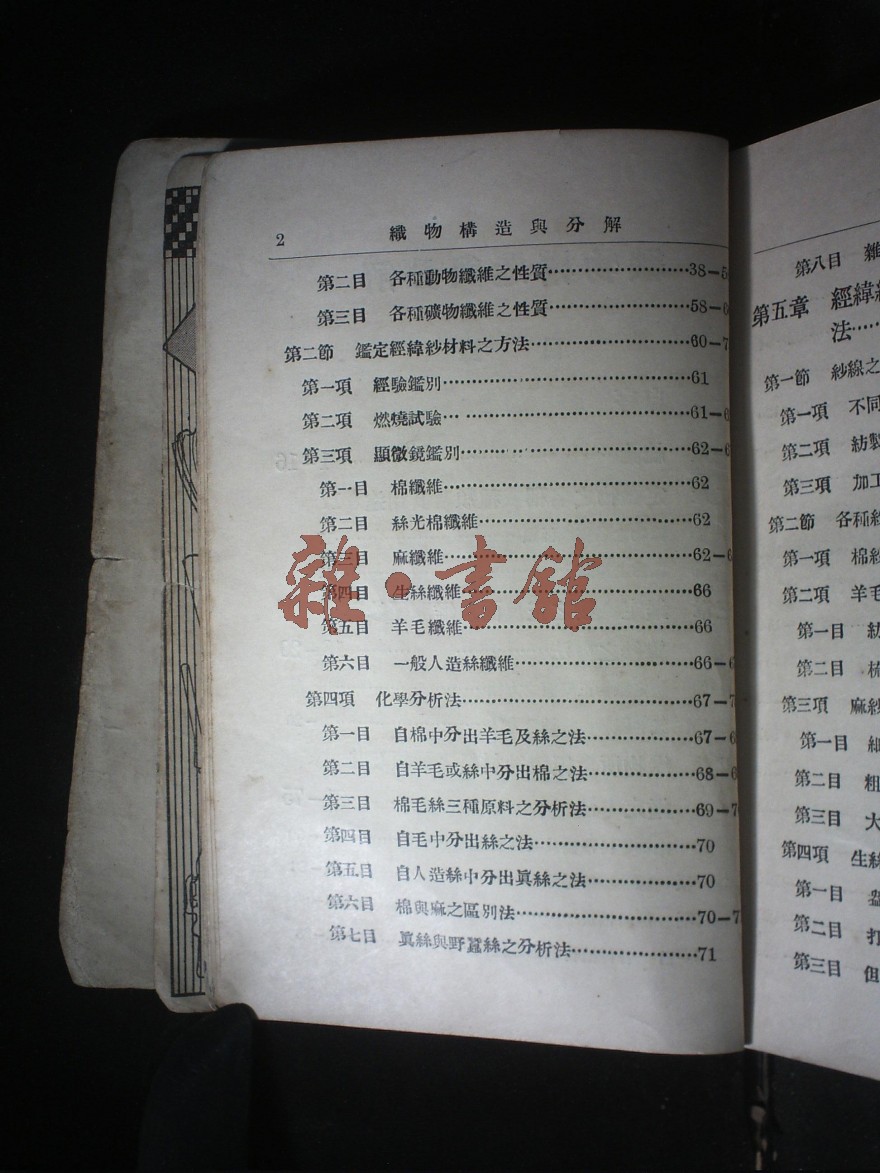 2 織物構造與分解
第二目 各種動物纖維之性質……………………38—5
第三目 各種礦物纖維之性質……………………58—6
第二節 鑑定經緯紗材料之方法……………………60—7
第一項 經驗鑑別……………………61
第二項 燃燒試驗……………………61—6
第三項 顯微鏡鑑別……………………62—6
第一目 棉纖維……………………62
第二目 絲光棉纖維……………………62
第三目 麻纖維……………………62—6
第四目 生絲纖維……………………66
第五目 羊毛纖維……………………66
第六目 一般人造絲纖維……………………66—6
第四項 化學分析法……………………67—7
第一目 自棉中分出羊毛及絲之法……………………67—6
第二目 自羊毛或絲中分出棉之法……………………68—6
第三目 棉毛絲三種原料之分析法……………………69—7
第四目 自毛中分出絲之法……………………70
第五目 自人造絲中分出眞絲之法……………………70
第六目 棉與麻之區別法……………………70—7
第七目 眞絲與野蠶絲之分析法……………………71
雜·書館
第八目 雜
第五章 經緯
法……
第一節 紗線之
第一項 不同
第二項 紡製
第三項 加工
第二節 各種
第一項 棉紗
第二項 羊毛
第一目 紡
第二目 梳
第三項 麻紗
第一目 細
第二目 粗
第三目 大
第四項 生絲
第一目
第二目 打
第三目 但